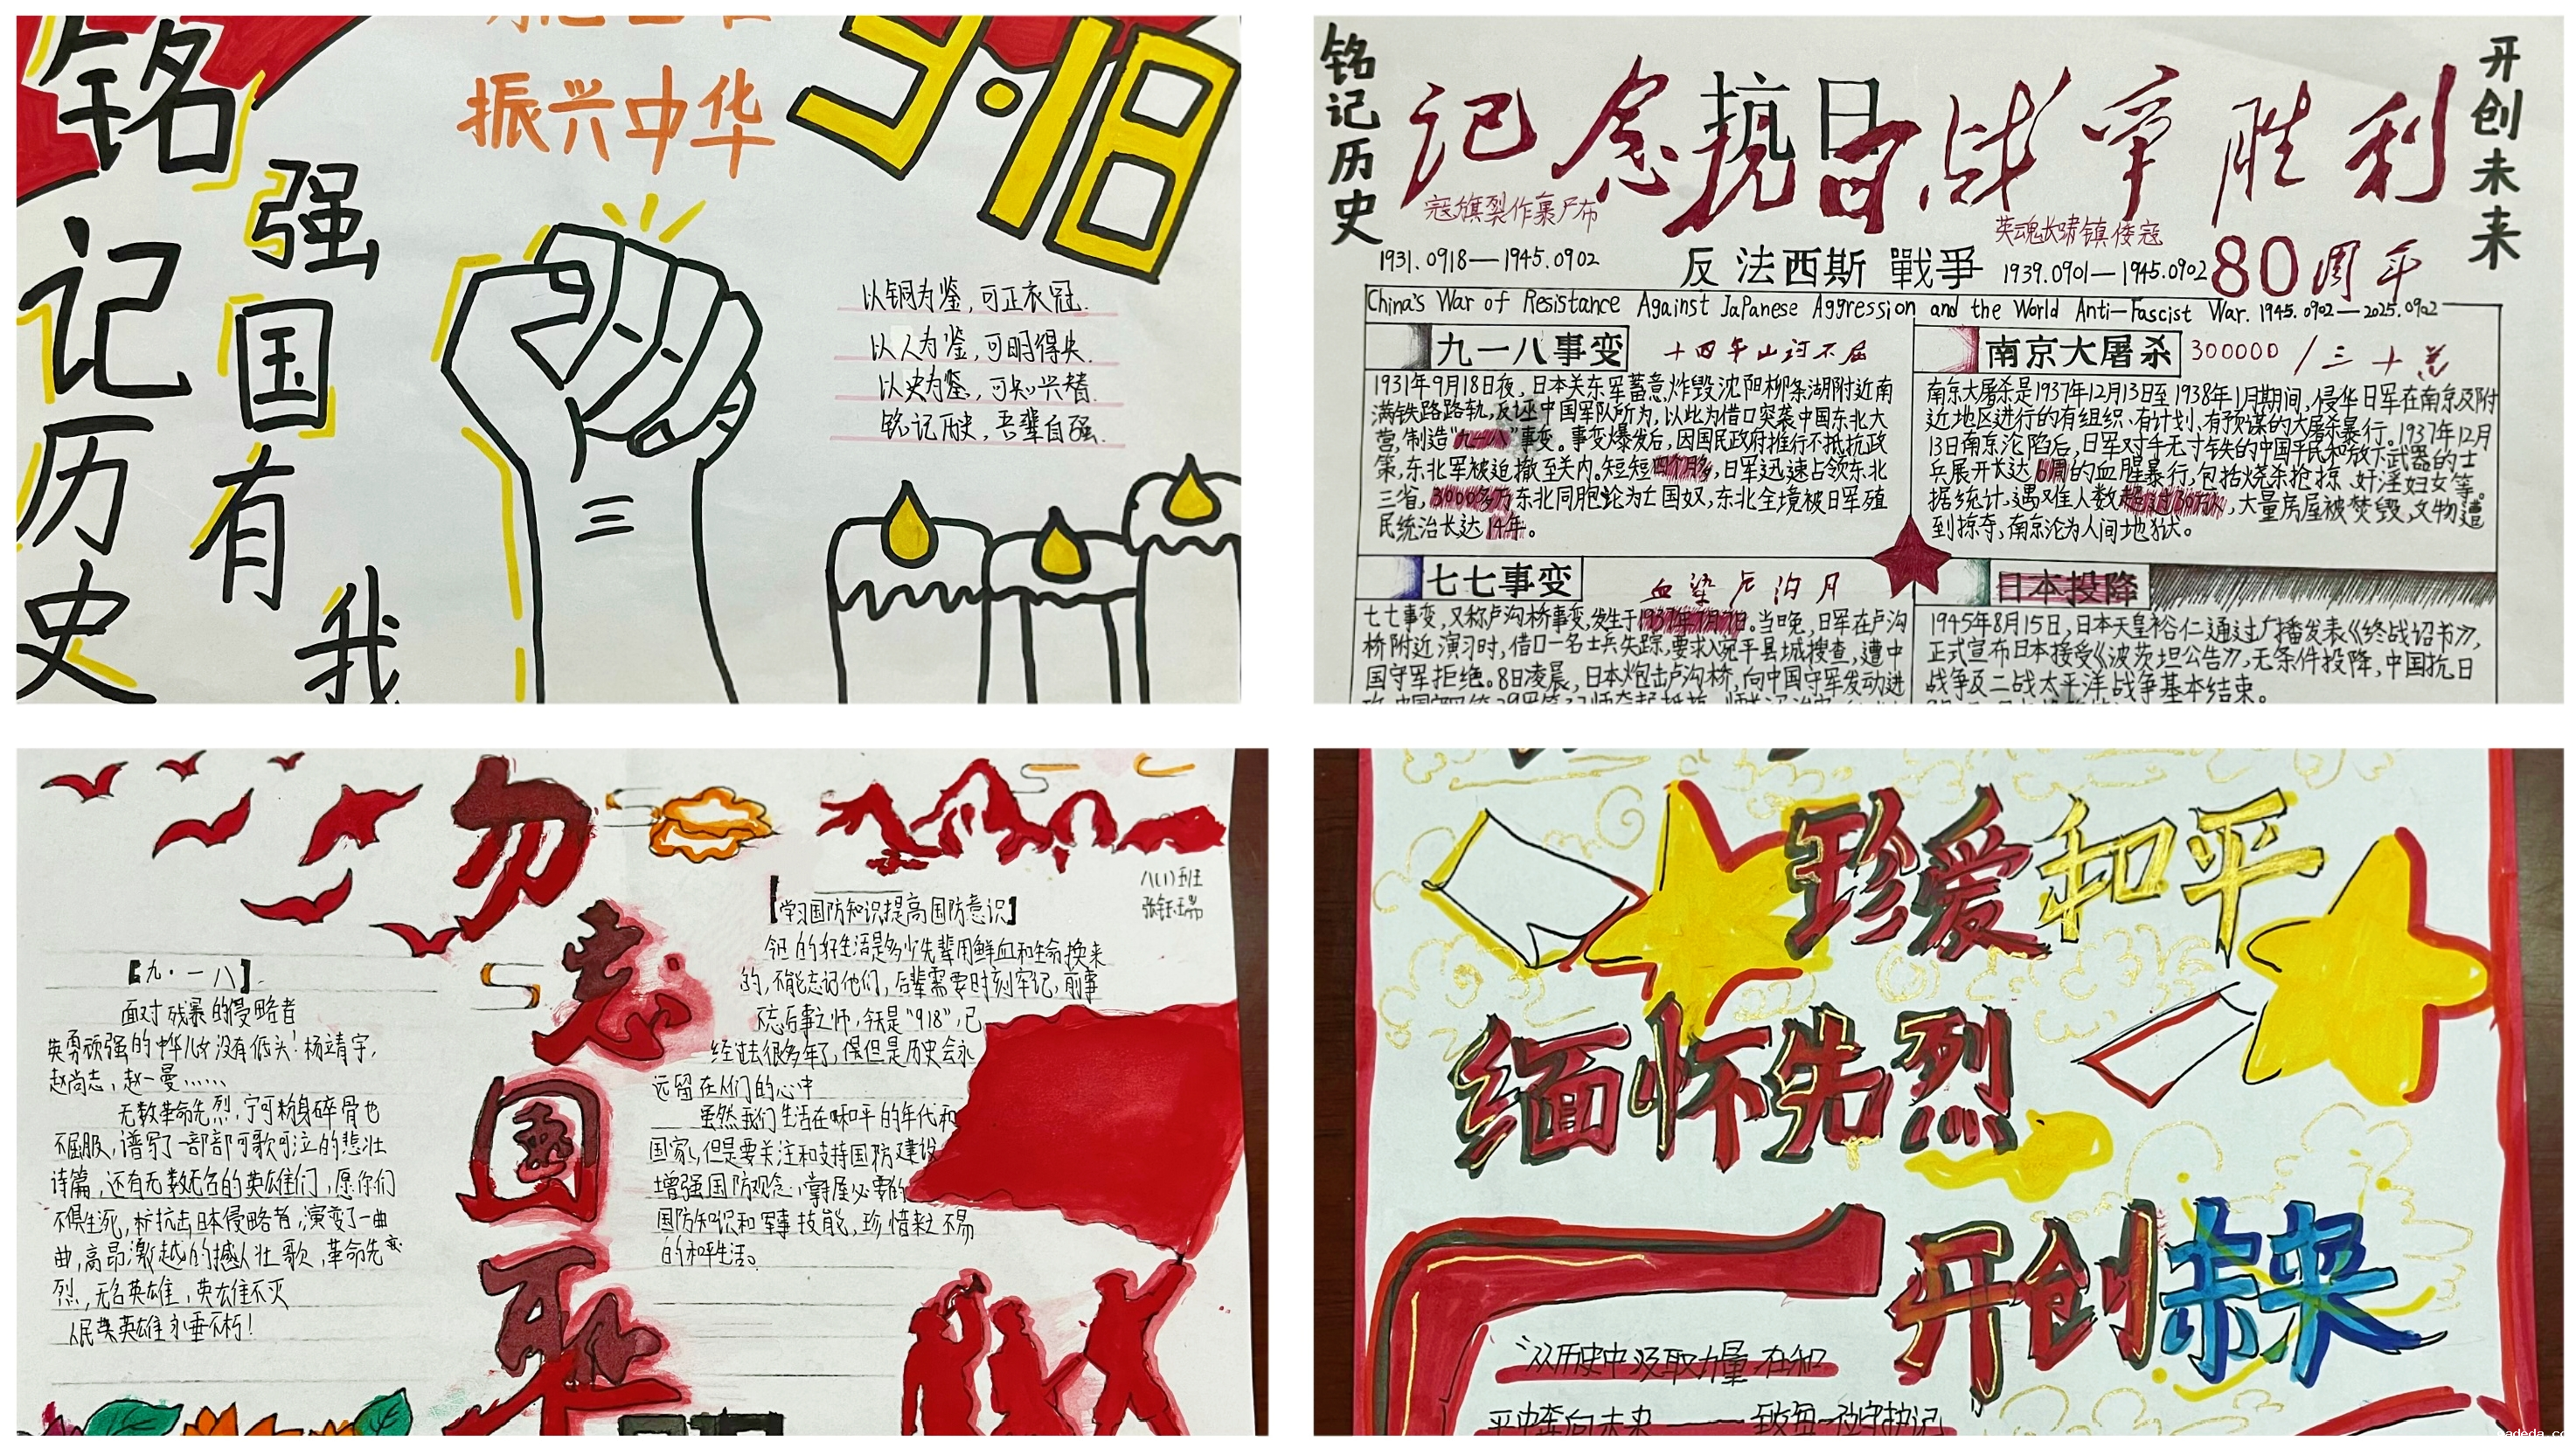 铭记历史
强国有我
振兴中华
9·18
以铜为鉴，可正衣冠.
以人为鉴，可明得失.
以史为鉴，可知兴替.
铭记历史，吾辈自强.
铭记历史
开创未来
记念抗日战争胜利
寇旗裂作裹尸布
英魂长啸镇倭寇
80周年
1931.0918—1945.0902
反法西斯戰爭
1939.0901—1945.0902
China's War of Resistance Against JaPanese Aggression and the World Anti-Fascist War. 1945.0902—2025.0902
九一八事变
十四年山河不屈
1931年9月18日夜，日本关东军蓄意炸毁沈阳柳条湖附近南
满铁路路轨，反诬中国军队所为，以此为借口突袭中国东北大
营，制造“九一八”事变。事变爆发后，因国民政府推行不抵抗政
策，东北军被迫撤至关内。短短四个月多，日军迅速占领东北
三省，3000多万东北同胞沦为亡国奴，东北全境被日军殖
民统治长达14年。
南京大屠杀
300000 / 三十万
南京大屠杀是1937年12月13日至1938年1月期间，侵华日军在南京及附
近地区进行的有组织、有计划、有预谋的大屠杀暴行。1937年12月
13日南京沦陷后，日军对手无寸铁的中国平民和放下武器的士
兵展开长达6周的血腥暴行，包括烧杀抢掠、奸淫妇女等。
据统计，遇难人数超过30万人，大量房屋被焚毁，文物遭
到掠夺，南京沦为人间地狱。
七七事变
血染卢沟月
七七事变，又称卢沟桥事变，发生于1937年7月7日。当晚，日军在卢沟
桥附近演习时，借口一名士兵失踪，要求入宛平县城搜查，遭中
国守军拒绝。8日凌晨，日本炮击卢沟桥，向中国守军发动进
日本投降
1945年8月15日，日本天皇裕仁通过广播发表《终战诏书》，
正式宣布日本接受《波茨坦公告》，无条件投降，中国抗日
战争及二战太平洋战争基本结束。
勿忘国耻
【九·一八】
面对残暴的侵略者
英勇顽强的中华儿女没有低头！杨靖宇，
赵尚志，赵一曼……
无数革命先烈，宁可粉身碎骨也
不屈服，谱写了一部部可歌可泣的悲壮
诗篇，还有无数无名的英雄们，愿你们
不惧生死，抗击日本侵略者，演变了一曲
曲，高昂激越的撼人壮歌，革命先
烈，无名英雄，英雄不灭
人民英雄永垂不朽！
八(1)班
【学习国防知识提高国防意识】
今日的好生活是多少先辈用鲜血和生命换来
的，不能忘记他们，后辈需要时刻牢记，前事
不忘后事之师，今天是“918”，已
经过去很多年了，但是历史会永
远留在人们的心中
虽然我们生活在和平的年代和
国家，但是要关注和支持国防建设
增强国防观念，掌握必要的
国防知识和军事技能，珍惜来之不易
的和平生活。
珍爱和平
缅怀先烈
开创未来
“从历史中汲取力量 在和
平中奔向未来——致每一份守护记